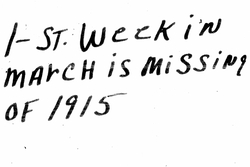 1-ST. WEEK IN
MARCH IS MISSING
OF 1915